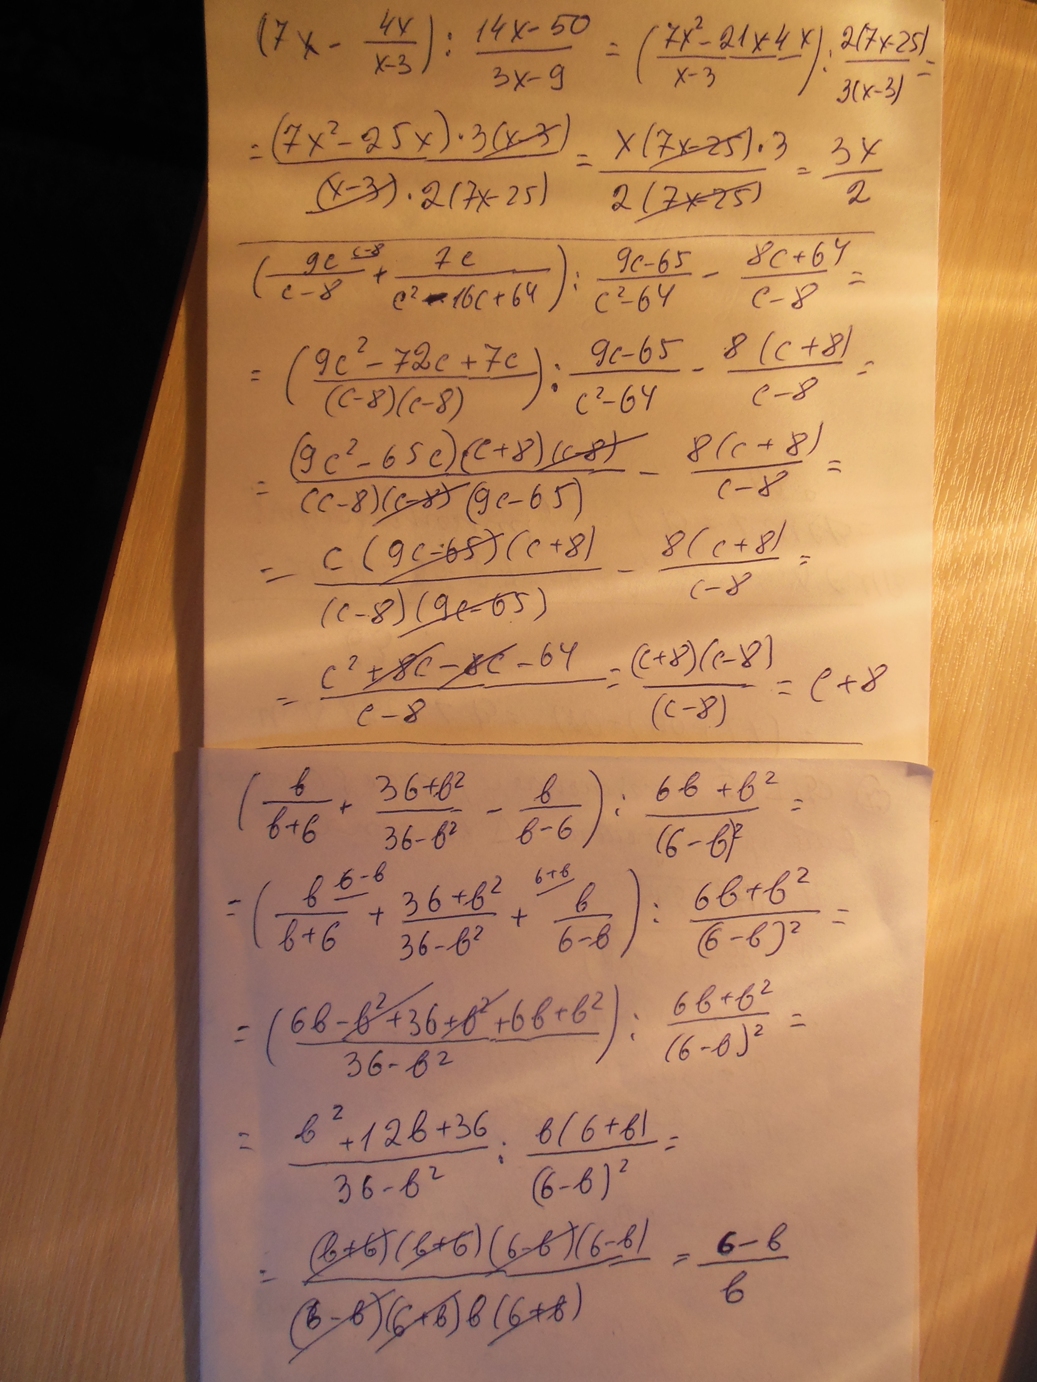 (7x - 4x/(x-3)) : (14x-50)/(3x-9) = ((7x²-21x-4x)/(x-3)) : 2(7x-25)/3(x-3) =
= (7x²-25x)·3(x-3)/(x-3)·2(7x-25) = x(7x-25)·3/2(7x-25) = 3x/2
(9c/(c-8) ^(c-8) + 7c/(c²-16c+64)) : (9c-65)/(c²-64) - (8c+64)/(c-8) =
= ((9c²-72c+7c)/(c-8)(c-8)) : (9c-65)/(c²-64) - 8(c+8)/(c-8) =
= (9c²-65c)(c+8)(c-8)/(c-8)(c-8)(9c-65) - 8(c+8)/(c-8) =
= c(9c-65)(c+8)/(c-8)(9c-65) - 8(c+8)/(c-8) =
= (c²+8c-8c-64)/(c-8) = (c+8)(c-8)/(c-8) = c+8
(b/(b+6) + (36+b²)/(36-b²) - b/(b-6)) : (6b+b²)/(6-b)² =
= (b/(b+6) ^(6-b) + (36+b²)/(36-b²) + ^(6+b) b/(6-b)) : (6b+b²)/(6-b)² =
= ((6b-b²+36+b²+6b+b²)/(36-b²)) : (6b+b²)/(6-b)² =
= (b²+12b+36)/(36-b²) : b(6+b)/(6-b)² =
= (b+6)(b+6)(6-b)(6-b)/(6-b)(6+b)b(6+b) = (6-b)/b